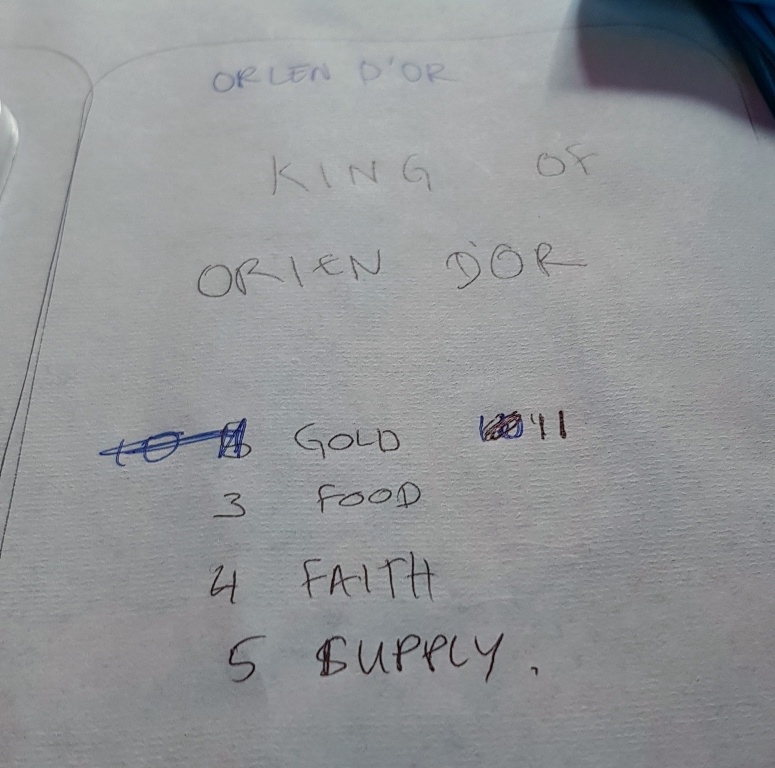 ORLEN D'OR
KING OF
ORIEN D'OR
GOLD 11
3 FOOD
4 FAITH
5 SUPPLY.